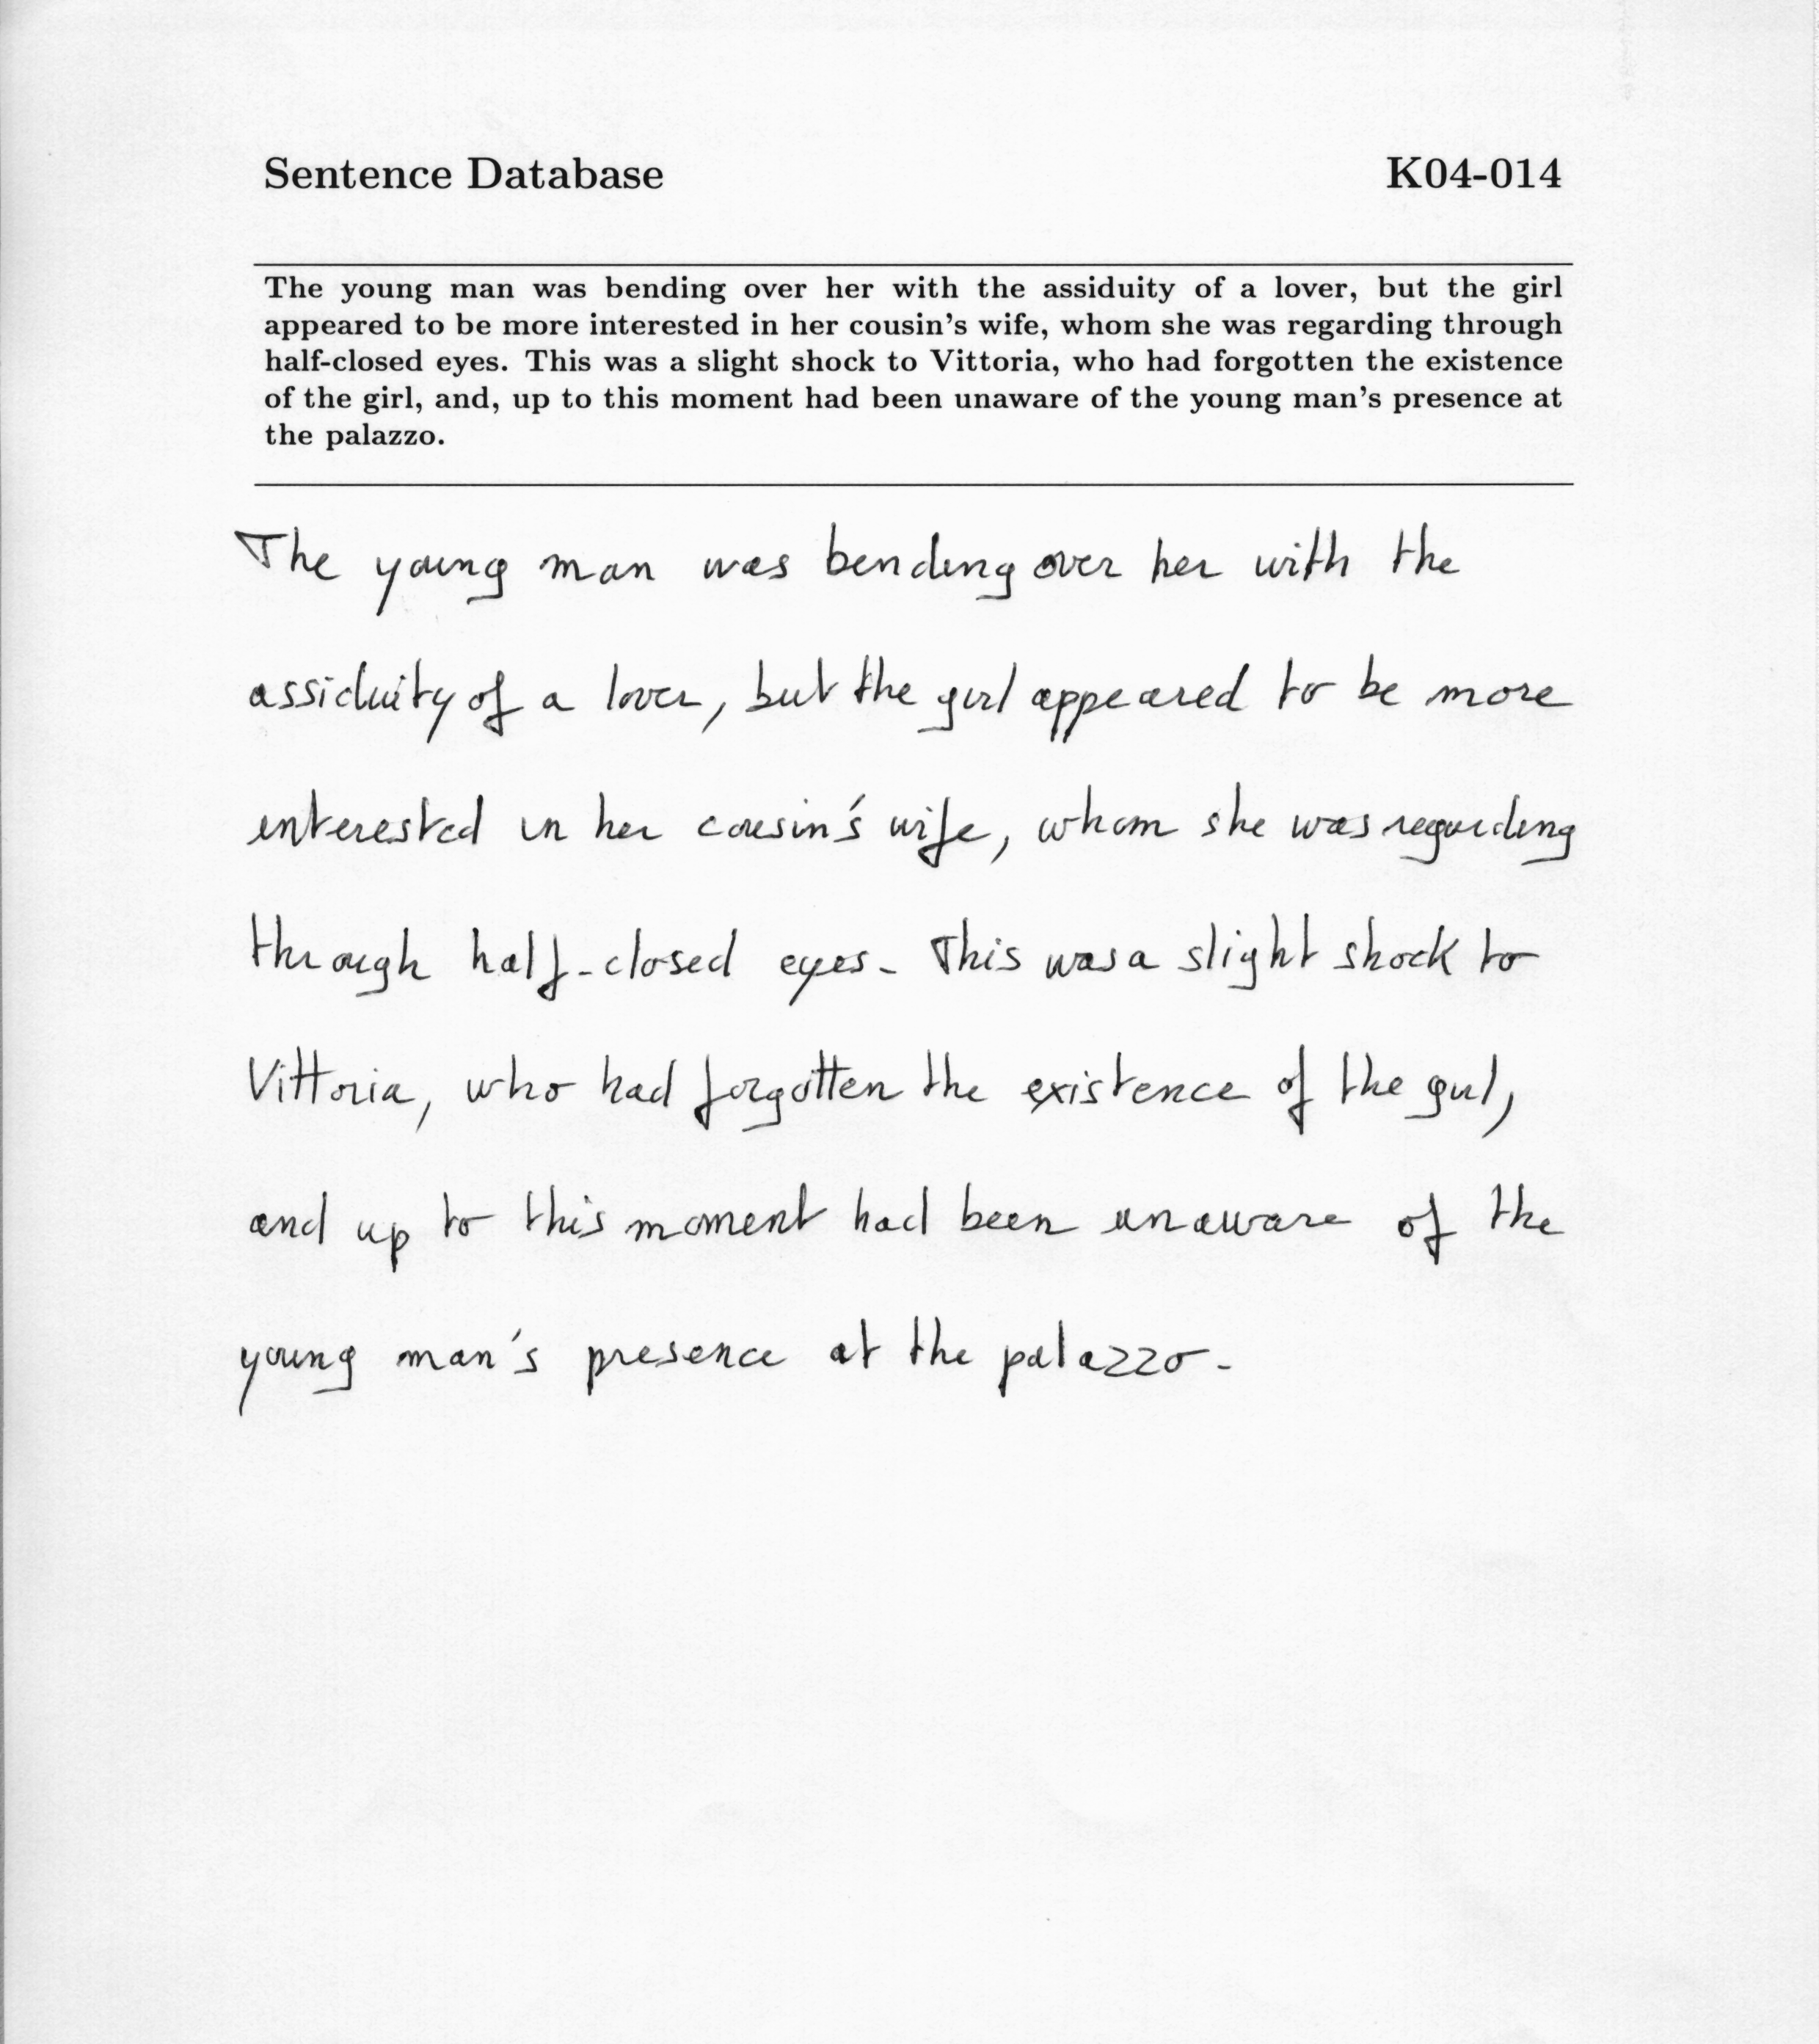 Sentence Database K04-014
The young man was bending over her with the assiduity of a lover, but the girl
appeared to be more interested in her cousin's wife, whom she was regarding through
half-closed eyes. This was a slight shock to Vittoria, who had forgotten the existence
of the girl, and, up to this moment had been unaware of the young man's presence at
the palazzo.
The young man was bending over her with the
assiduity of a lover, but the girl appeared to be more
interested in her cousin's wife, whom she was regarding
through half-closed eyes. This was a slight shock to
Vittoria, who had forgotten the existence of the girl,
and up to this moment had been unaware of the
young man's presence at the palazzo.